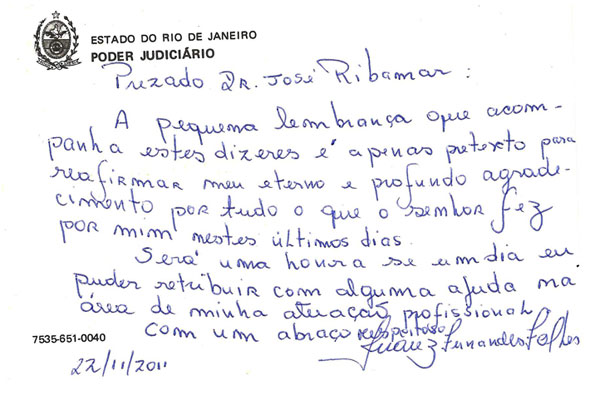 ESTADO DO RIO DE JANEIRO
PODER JUDICIÁRIO
Prezado DR. José Ribamar:
A pequena lembrança que acom-
panha estes dizeres é apenas pretexto para
reafirmar meu eterno e profundo agrade-
cimento por tudo o que o senhor fez
por mim nestes últimos dias.
Será uma honra se um dia eu
puder retribuir com alguma ajuda na
área de minha atuação profissional.
Com um abraço respeitoso,
Juarez Fernandes Folhes
7535-651-0040
22/11/2011